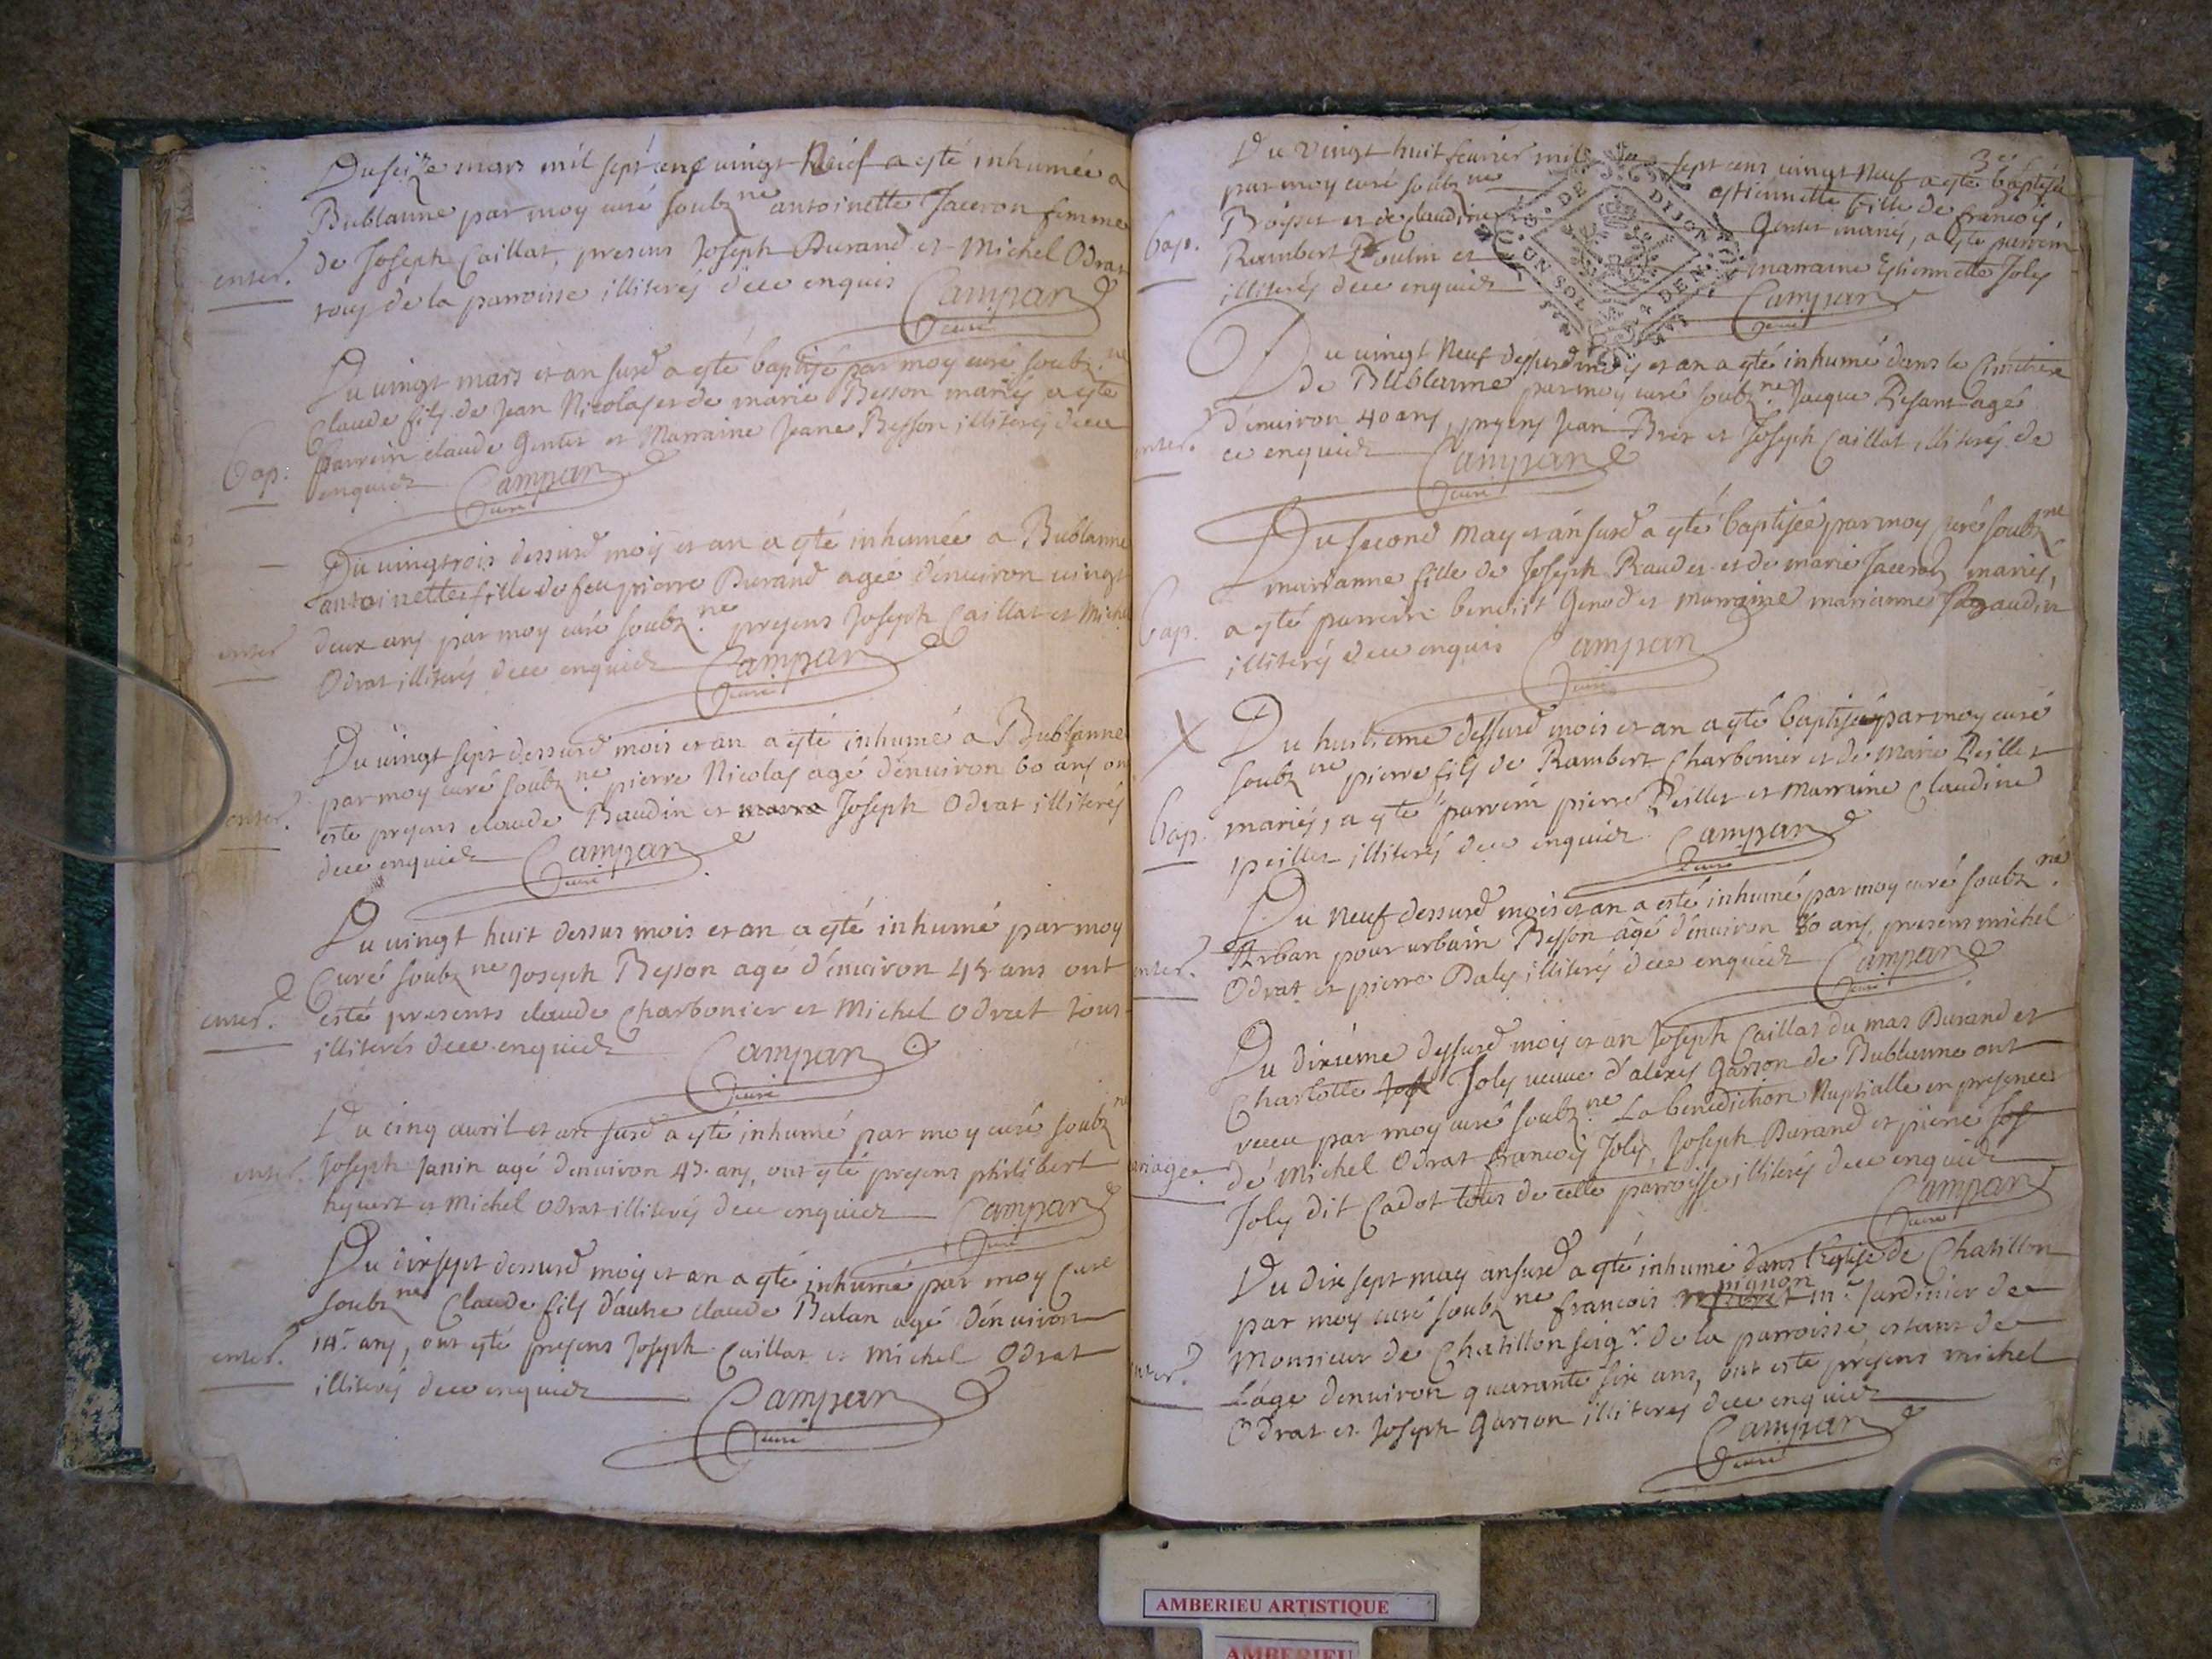 Du seize mars mil sept cens vingt Neuf a esté inhumée a
Bublanne par moy curé soubz.ne antoinette Jaceron femme
enter. de Joseph Caillat, presens Joseph Durand et Michel Odrat
tous de la parroisse illiterés d'ece enquis Campan
curé
Du vingt mars et an susd a esté baptisé par moy curé soubz.ne
Claude fils de Jean Nicolas et de marie Besson mariés a esté
Bap. parrein claude Gentet et Marraine Jeane Besson illiterés d'ece
enquiez Campan
curé
Du vingtrois dessusd mois et an a esté inhumée a Bublanne
antoinette fille de feu pierre Durand agee d'environ vingt
enter deux ans par moy curé soubz.ne presens Joseph Caillat et Michel
Odrat illiterés d'ece enquiez Campan
curé
Du vingt sept dessusd mois et an a esté inhumé a Bublanne
par moy curé soubz.ne pierre Nicolas agé d'environ 60 ans on
enter. este presens claude Baudin et Joseph Odrat illiterés
d'ece enquiez Campan
curé
Du vingt huit dessus mois et an a esté inhumé par moy
Curé soubz.ne Joseph Besson agé d'environ 45 ans ont
enter. esté presents claude Charbonier et Michel Odrat tous
illiterés d'ece enquiez Campan
curé
Du cinq avril et an susd a esté inhumé par moy curé soubz.ne
enter. Joseph Janin agé d'environ 45 ans, ont esté presens philibert
et Michel Odrat illiterés d'ece enquiez Campan
curé
Du dixsept dessusd mois et an a esté inhumé par moy curé
soubz.ne Claude fils d'autre claude Balan agé d'environ
enter. 14 ans, ont esté presens Joseph Caillat et Michel Odrat
illiterés d'ece enquiez Campan
curé
3e
Du vingt huit fevrier mil sept cens vingt Neuf a esté baptisée
par moy curé soubz.ne estiennette fille de francois
Bap. Boysset et de claudine Gentet mariés, a esté parrein
Rambert Poulin et marraine Estiennette Joly
illiterés d'ece enquiez Campan
curé
G. DE DIJON
UN SOL 4 DEN.
Du vingt Neuf dessusd mois et an a esté inhumé dans le Cimetiere
de Bublanne par moy curé soubz.ne Jacque agé
enter. d'environ 40 ans, presens Jean Bret et Joseph Caillat illiterés de
ce enquiez Campan
curé
Du second May et an susd a esté baptisée par moy curé soubz.ne
marianne fille de Joseph et de marie Jaceron mariés,
Bap. a esté parrein benoist Genod et marraine marianne
illiterés d'ece enquis Campan
curé
X Du huitieme dessusd mois et an a esté baptisé par moy curé
soubz.ne pierre fils de Rambert Charbonier et de Marie Peillet
Bap. mariés, a esté parrein pierre Peillet et Marraine Claudine
peillet illiterés d'ece enquiez Campan
curé
Du Neuf dessusd mois et an a esté inhumé par moy curé soubz.ne
Arban pour urbain Besson âgé d'environ 80 ans, presens michel
enter. Odrat et pierre Baly illiterés d'ece enquiéz Campan
curé
Du dixiéme dessusd mois et an Joseph Caillat du mas Durand et
Charlotte Joly veuve d'alexis Garson de Bublanne ont
receu par moy curé soubz.ne La benediction Nuptialle en presence
mariage. de Michel Odrat francois Joly, Joseph Durand et pierre
Joly dit Cadot tous de cette parroisse illiterés d'ece enquiez
Campan
curé
Du dix sept may an susd a esté inhumé dans l'Eglise de Chatillon
par moy curé soubz.ne francois pignon m.e Jardinier de
enter. Monsieur de Chatillon seig.r de la parroisse, estant de
L'age d'environ quarante six ans, ont este presens michel
Odrat et Joseph Garson illiterés d'ece enquiez
Campan
curé
AMBERIEU ARTISTIQUE
AMBERIEU